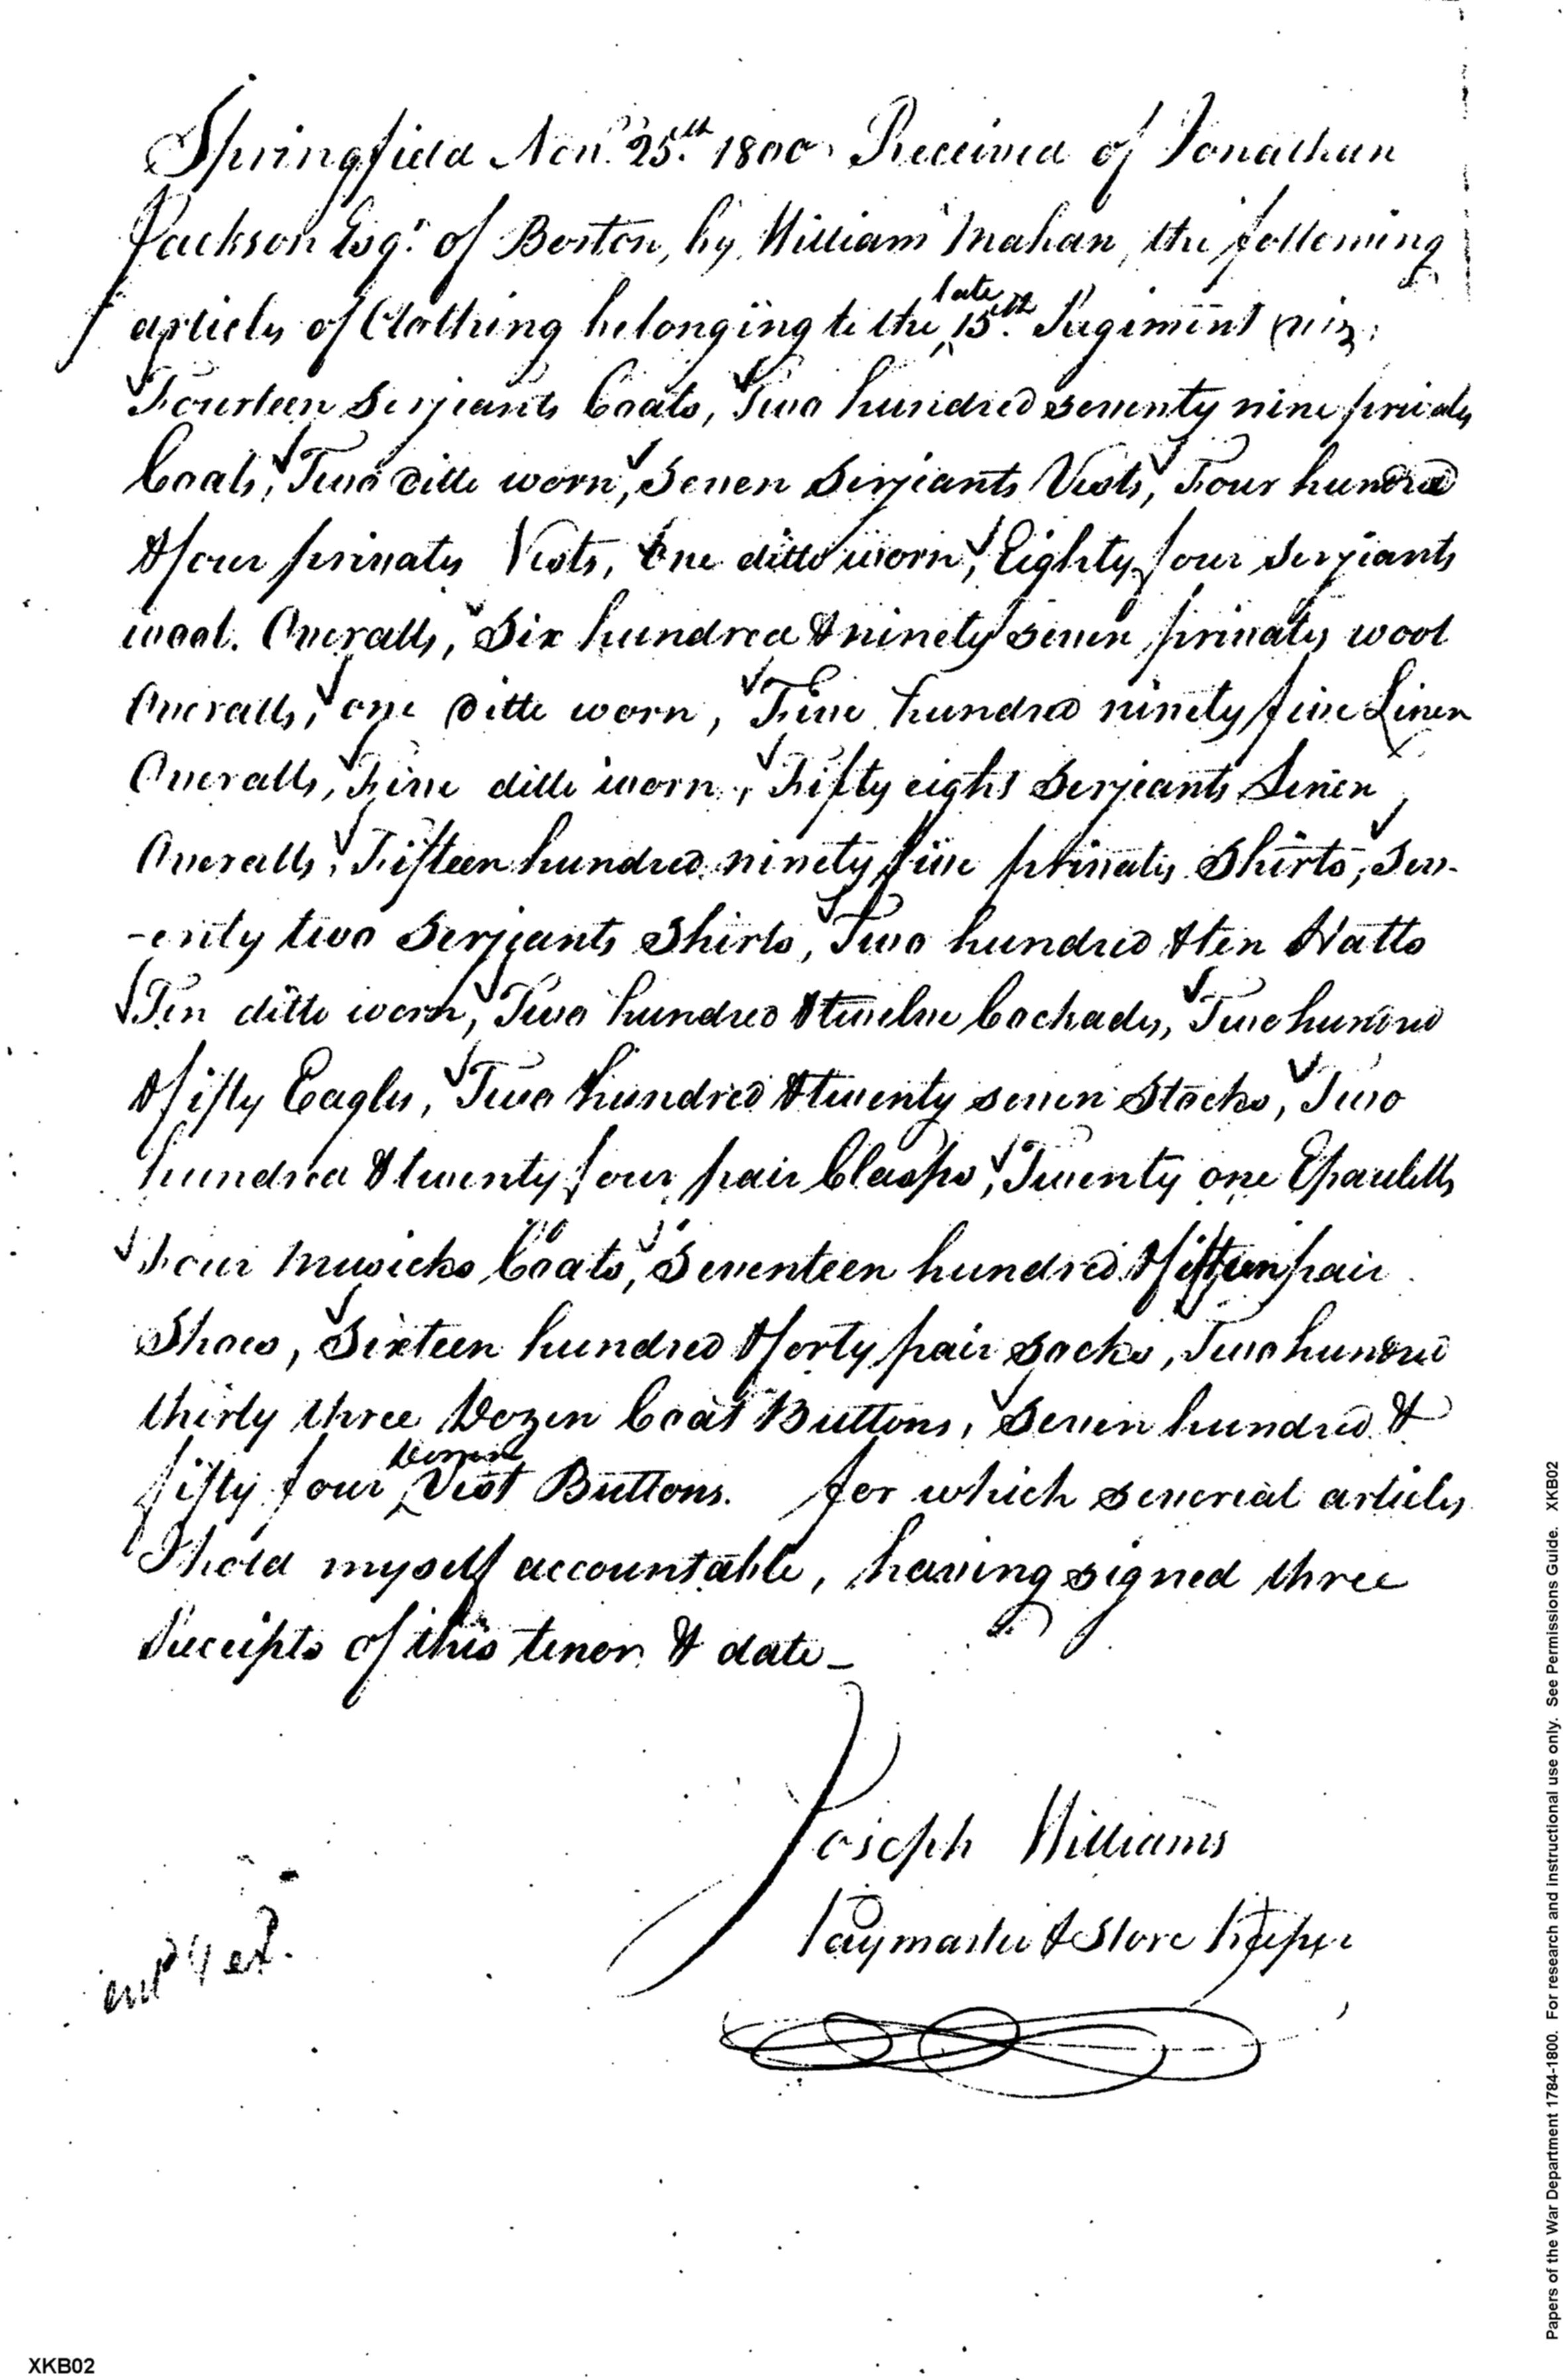 Springfield Nov.r 25.th 1800. Received of Jonathan
Jackson Esq.r of Boston, by William Mahan, the following
articles of Clothing belonging to the late 15.th Regiment viz;
Fourteen Serjeants Coats, Two hundred seventy nine privates
Coats, Two ditto worn, Seven Serjeants Vests, Four hundred
& four privates Vests, One ditto worn, Eighty four Serjeants
wool. Overalls, Six hundred & ninety seven privates wool
Overalls, one ditto worn, Five hundred ninety five Linen
Overalls, Five ditto worn, Fifty eight Serjeants Linen
Overalls, Fifteen hundred ninety five privates Shirts, Sev-
-enty two Serjeants Shirts, Two hundred & ten Hatts
Ten ditto worn, Two hundred & twelve Cockades, Two hundred
& fifty Eagles, Two hundred & twenty seven Stocks, Two
hundred & twenty four pair Clasps, Twenty one Epauletts
Four Musicks Coats, Seventeen hundred & fifteen pair
Shoes, Sixteen hundred & forty pair Socks, Two hundred
thirty three Dozen Coat Buttons, Seven hundred &
fifty four Dozen Vest Buttons. for which several articles
I hold myself accountable, having signed three
Receipts of this tenor & date_
Joseph Williams
Paymaster & Store Keeper
XKB02
Papers of the War Department 1784-1800. For research and instructional use only. See Permissions Guide. XKB02